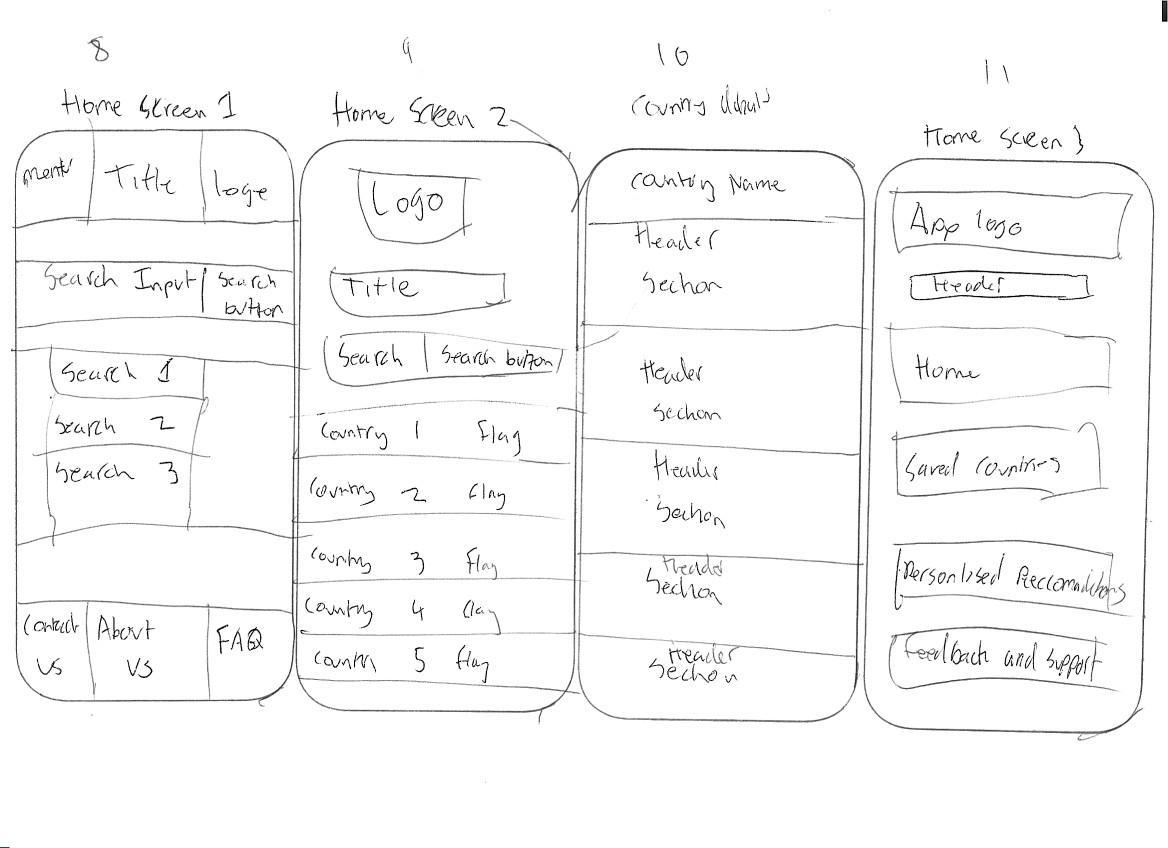 8
Home Screen 1
menu
Title
loge
Search Input
Search
button
Search 1
Search 2
Search 3
Contact
us
About
US
FAQ
9
Home Screen 2
Logo
Title
Search
Search button
Country 1 Flag
Country 2 Flag
Country 3 Flag
Country 4 flag
Country 5 flag
10
Country details
Country Name
Header
Section
Header
Section
Header
Section
Header
Section
Header
Section
11
Home screen 3
App logo
Header
Home
Saved Countries
Personlised Reccomadictions
Feedback and support